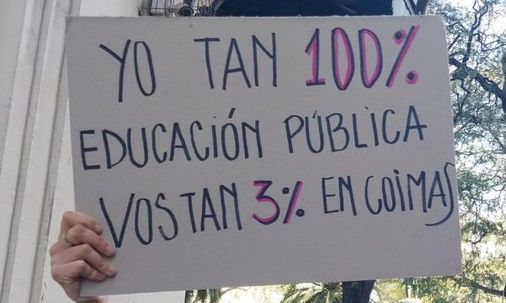 YO TAN 100%
EDUCACIÓN PÚBLICA
VOS TAN 3% EN COIMAS